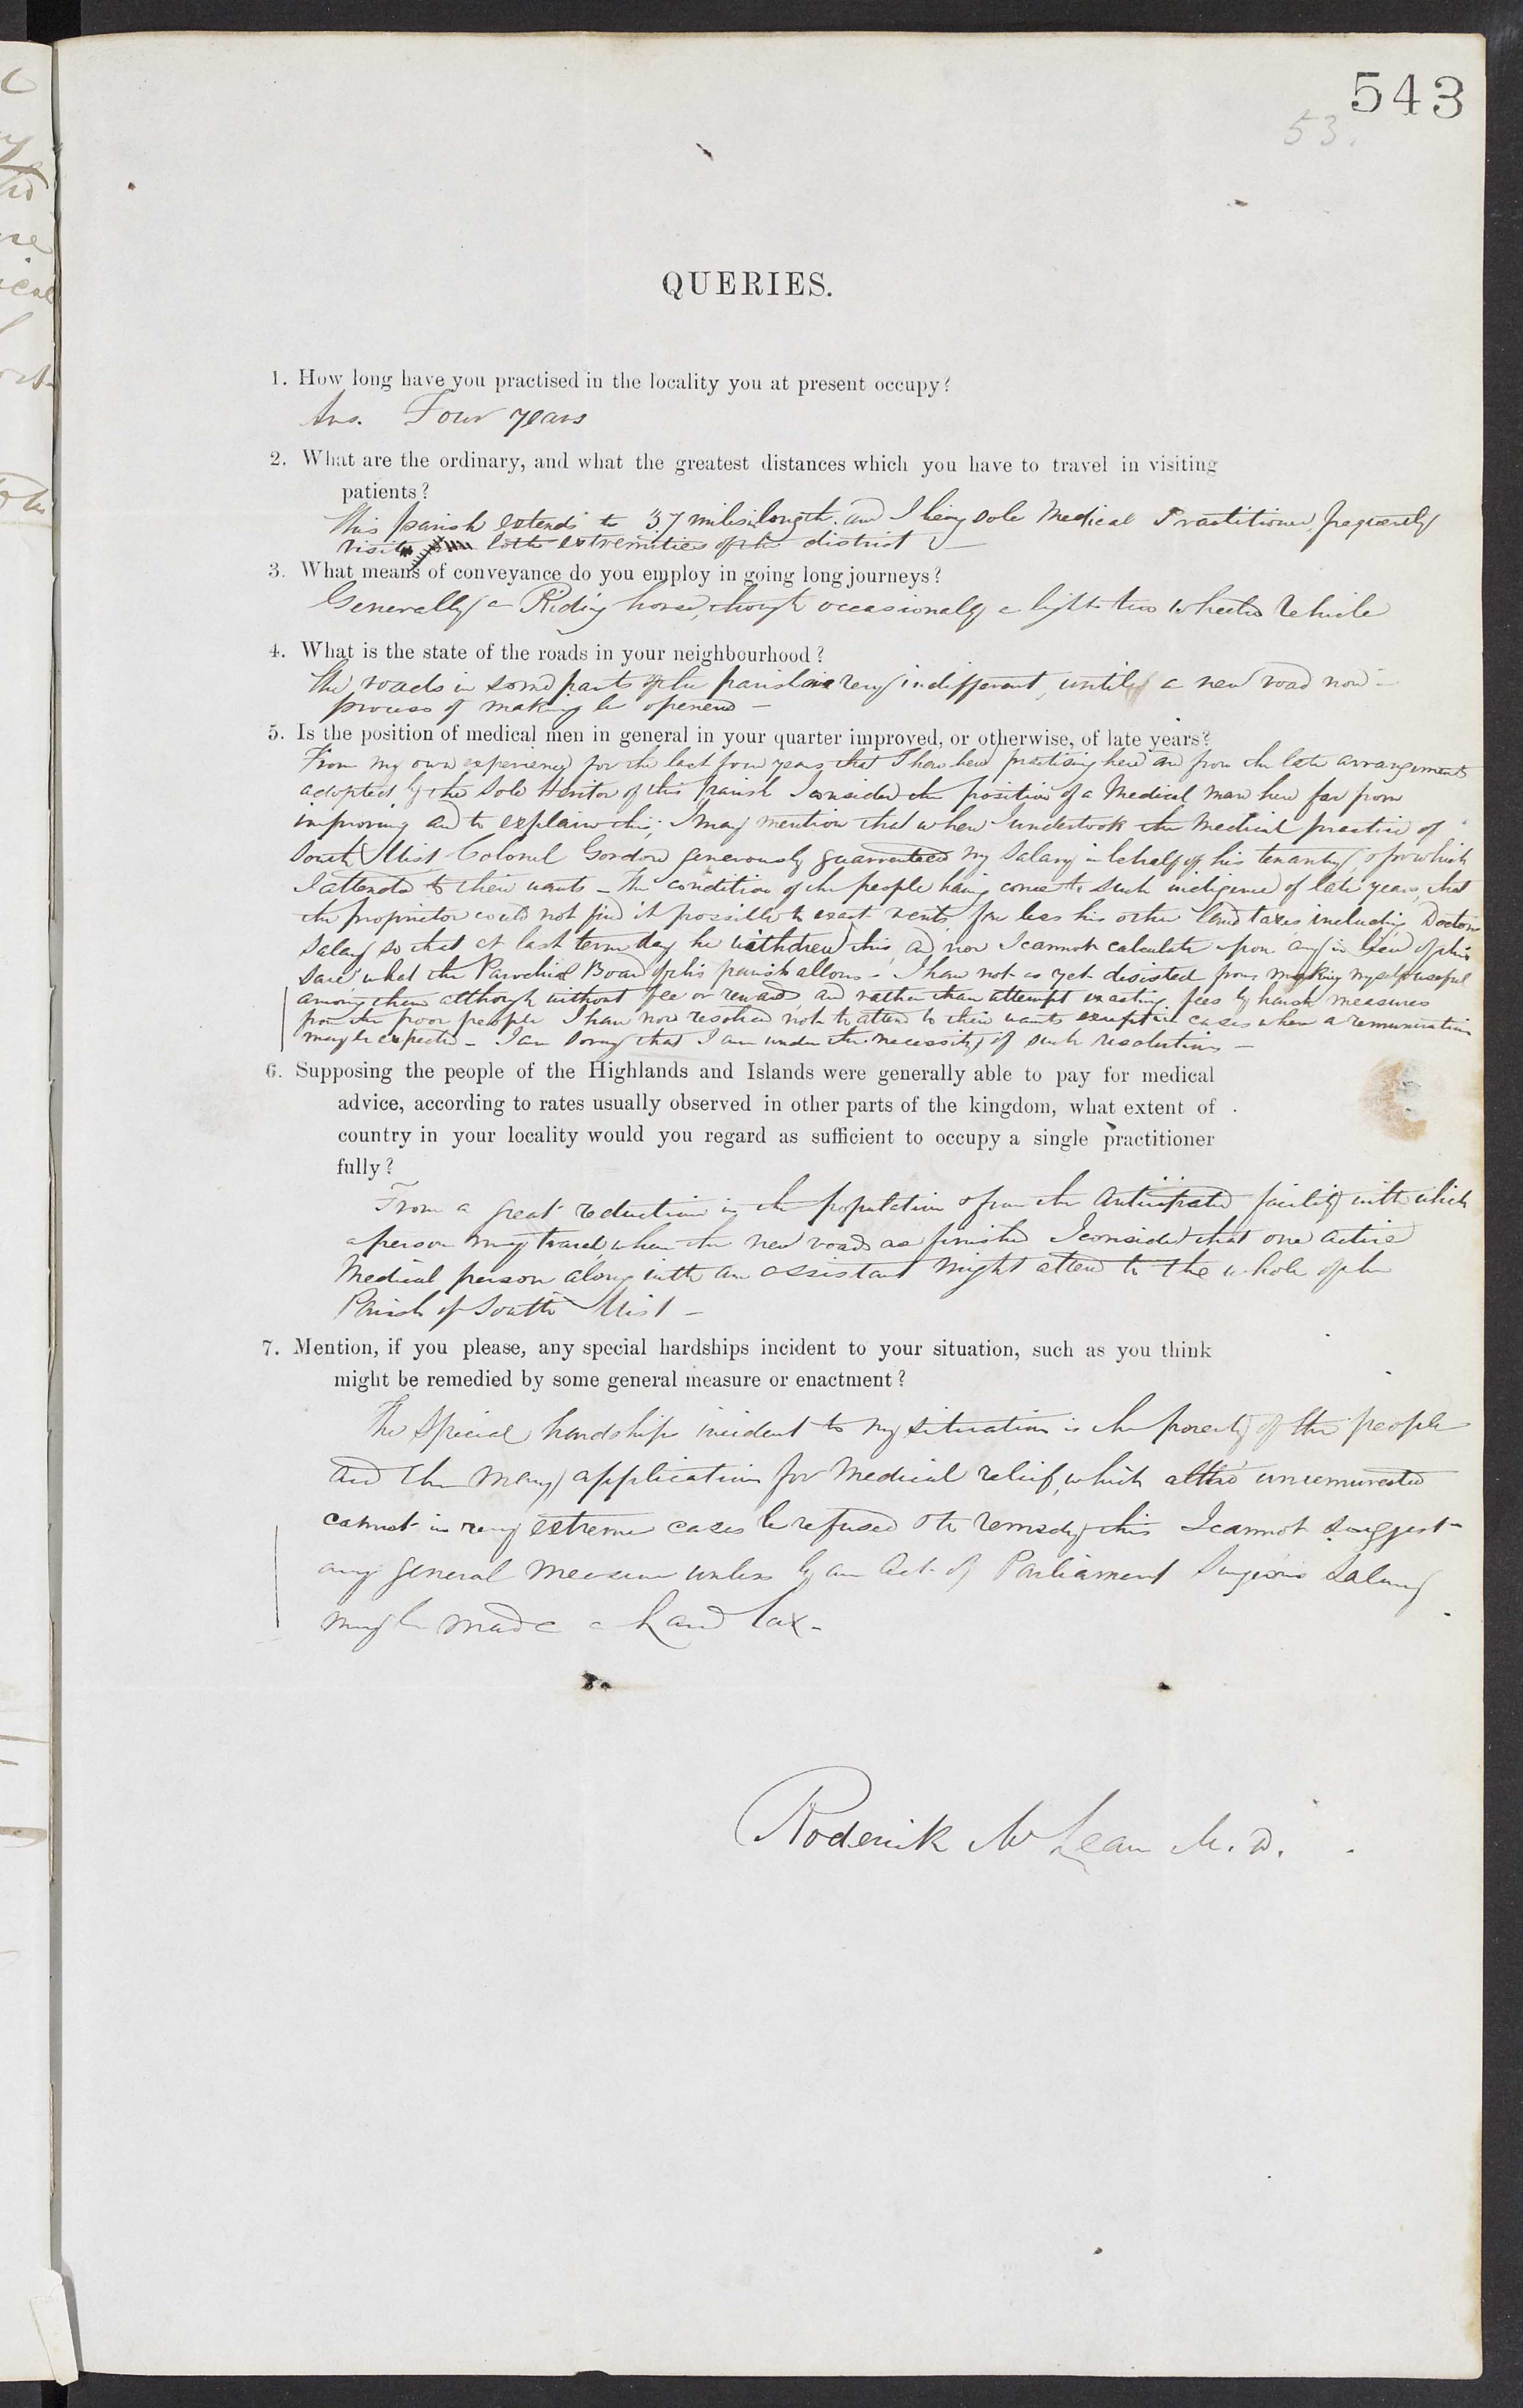 543
53.
QUERIES.
1. How long have you practised in the locality you at present occupy?
Ans. Four years
2. What are the ordinary, and what the greatest distances which you have to travel in visiting
patients?
This parish extends to 37 miles in length. and I being sole Medical Practitioner, frequently
visit both extremities of the district —
3. What means of conveyance do you employ in going long journeys?
Generally a Riding horse, though occasionally a light two wheeled Vehicle
4. What is the state of the roads in your neighbourhood?
The roads in some parts of the parish are very indifferent, until a new road now in
process of making be opened —
5. Is the position of medical men in general in your quarter improved, or otherwise, of late years?
From my own experience for the last four years that I have been practising here and from the late arrangements
adopted by the Sole Heritor of this Parish I consider the position of a Medical man here far from
improving and to explain this, I may mention that when I undertook the Medical practice of
South Uist Colonel Gordon generously guaranteed my Salary in behalf of his tenantry & for which
I attended to their wants — The condition of the people having come to such indigence of late years, that
the proprietor could not find it possible to exact rents, far less his other land taxes including Doctors
Salary so that at last term day he withdrew this, and now I cannot calculate upon any in lieu of this
save what the Parochial Board of this parish allows — I have not as yet desisted from making myself useful
among them although without fee or reward, and rather than attempt exacting fees by harsh measures
from the poor people I have now resolved not to attend to their wants except in cases where a remuneration
may be expected — I am sorry that I am under the necessity of such resolution —
6. Supposing the people of the Highlands and Islands were generally able to pay for medical
advice, according to rates usually observed in other parts of the kingdom, what extent of
country in your locality would you regard as sufficient to occupy a single practitioner
fully?
From a great reduction in the population & from the anticipated facility with which
a person may travel, when the new roads are finished I consider that one active
Medical person along with an assistant might attend to the whole of the
Parish of South Uist —
7. Mention, if you please, any special hardships incident to your situation, such as you think
might be remedied by some general measure or enactment?
The Special hardships incident to my situation is the poverty of the people
and the many applications for Medical relief, which altho unremunerated
cannot in very extreme cases be refused & to remedy this I cannot suggest
any general measure unless by an Act of Parliament Surgeons Salary
might be made a Land tax —
Roderick McLean M.D.